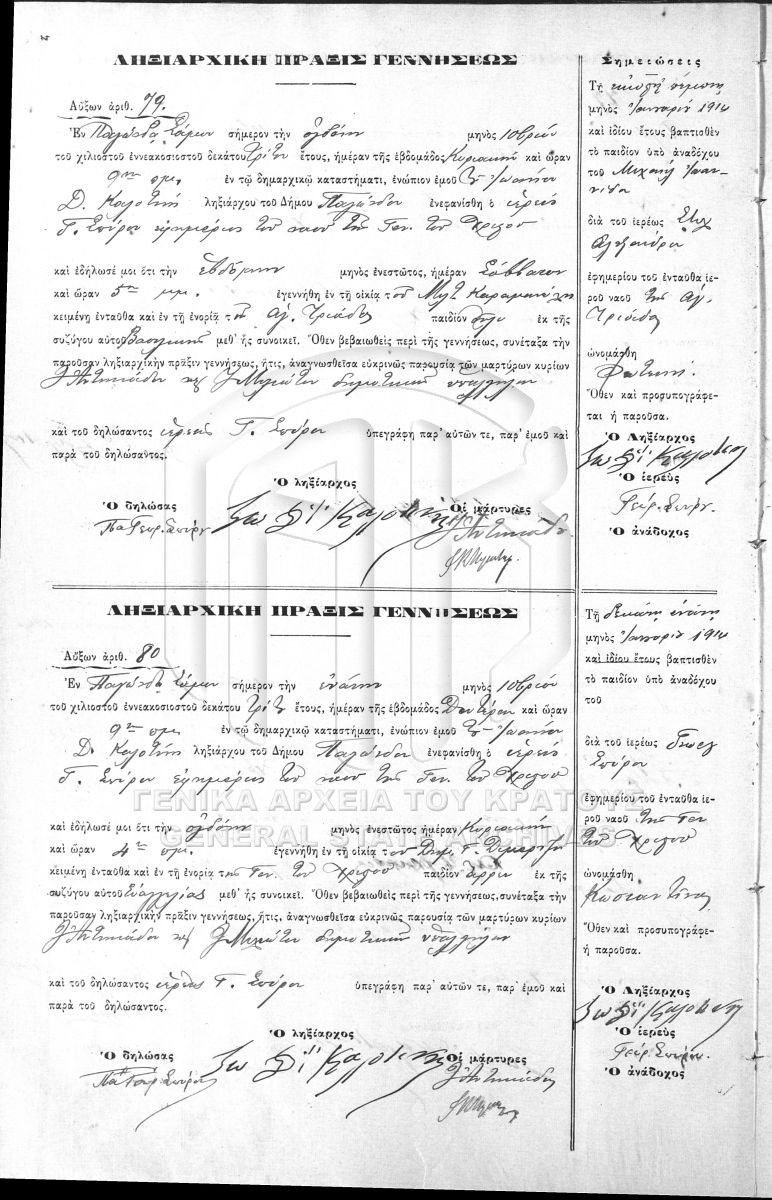 ΛΗΞΙΑΡΧΙΚΗ ΠΡΑΞΙΣ ΓΕΝΝΗΣΕΩΣ
Αὔξων ἀριθ. 79.
Ἐν Παγώνδᾳ Σάμου σήμερον τὴν ὀγδόην μηνὸς 10βρίου
τοῦ χιλιοστοῦ ἐννεακοσιοστοῦ δεκάτου τρίτου ἔτους, ἡμέραν τῆς ἑβδομάδος Κυριακήν καὶ ὥραν
9ην πμ. ἐν τῷ δημαρχικῷ καταστήματι, ἐνώπιον ἐμοῦ τοῦ Ἰωάννου
Δ. Καλοτίνη ληξιάρχου τοῦ Δήμου Παγώνδα ἐνεφανίσθη ὁ ἱερεὺς
Γ. Σπύρου ἐφημέριος τοῦ ναοῦ τῆς Γεν. τοῦ Χριστοῦ
καὶ ἐδήλωσέ μοι ὅτι τὴν ἑβδόμην μηνὸς ἐνεστῶτος, ἡμέραν Σάββατον
καὶ ὥραν 5ην μμ. ἐγεννήθη ἐν τῇ οἰκίᾳ τοῦ
κειμένῃ ἐνταῦθα καὶ ἐν τῇ ἐνορίᾳ τῆς Ἁγ. Τριάδος παιδίον θῆλυ ἐκ τῆς
συζύγου αὐτοῦ Βασιλικῆς μεθ᾽ ἧς συνοικεῖ. Ὅθεν βεβαιωθεὶς περὶ τῆς γεννήσεως, συνέταξα τὴν
παροῦσαν ληξιαρχικὴν πρᾶξιν γεννήσεως, ἥτις, ἀναγνωσθεῖσα εὐκρινῶς παρουσίᾳ τῶν μαρτύρων κυρίων
δημοτικῶν ὑπαλλήλων
καὶ τοῦ δηλώσαντος ἱερέως Γ. Σπύρου ὑπεγράφη παρ᾽ αὐτῶν τε, παρ᾽ ἐμοῦ καὶ
παρὰ τοῦ δηλώσαντος.
Ὁ ληξίαρχος
Ὁ δηλώσας Οἱ μάρτυρες
Σημειώσεις
Τῇ
μηνὸς Ἰανουαρίου 1914
καὶ ἰδίου ἔτους βαπτισθὲν
τὸ παιδίον ὑπὸ ἀναδόχου
τοῦ Μιχαὴλ
διὰ τοῦ ἱερέως
Ἀλεξάνδρου
ἐφημερίου τοῦ ἐνταῦθα ἱε-
ροῦ ναοῦ τῆς Ἁγ.
Τριάδος
ὠνομάσθη
Φωτεινή.
Ὅθεν καὶ προσυπογράφε-
ται ἡ παροῦσα.
Ὁ Ληξίαρχος
Ὁ ἱερεὺς
Γεώρ. Σπύρου
Ὁ ἀνάδοχος
ΛΗΞΙΑΡΧΙΚΗ ΠΡΑΞΙΣ ΓΕΝΝΗΣΕΩΣ
Αὔξων ἀριθ. 80
Ἐν Παγώνδᾳ Σάμου σήμερον τὴν ἐνάτην μηνὸς 10βρίου
τοῦ χιλιοστοῦ ἐννεακοσιοστοῦ δεκάτου τρίτου ἔτους, ἡμέραν τῆς ἑβδομάδος Δευτέραν καὶ ὥραν
9ην πμ. ἐν τῷ δημαρχικῷ καταστήματι, ἐνώπιον ἐμοῦ τοῦ Ἰωάννου
Δ. Καλοτίνη ληξιάρχου τοῦ Δήμου Παγώνδα ἐνεφανίσθη ὁ ἱερεὺς
Γ. Σπύρου ἐφημέριος τοῦ ναοῦ τῆς Γεν. τοῦ Χριστοῦ
ΓΕΝΙΚΑ ΑΡΧΕΙΑ ΤΟΥ ΚΡΑΤΟΥΣ
GENERAL STATE ARCHIVES
καὶ ἐδήλωσέ μοι ὅτι τὴν ὀγδόην μηνὸς ἐνεστῶτος ἡμέραν Κυριακήν
καὶ ὥραν 4ην πμ. ἐγεννήθη ἐν τῇ οἰκίᾳ τοῦ Δημ. Γ.
κειμένῃ ἐνταῦθα καὶ ἐν τῇ ἐνορίᾳ τῆς Γεν. τοῦ Χριστοῦ παιδίον ἄρρεν ἐκ τῆς
συζύγου αὐτοῦ Εὐαγγελίας μεθ᾽ ἧς συνοικεῖ. Ὅθεν βεβαιωθεὶς περὶ τῆς γεννήσεως, συνέταξα τὴν
παροῦσαν ληξιαρχικὴν πρᾶξιν γεννήσεως, ἥτις, ἀναγνωσθεῖσα εὐκρινῶς παρουσίᾳ τῶν μαρτύρων κυρίων
δημοτικῶν ὑπαλλήλων
καὶ τοῦ δηλώσαντος ἱερέως Γ. Σπύρου ὑπεγράφη παρ᾽ αὐτῶν τε, παρ᾽ ἐμοῦ καὶ
παρὰ τοῦ δηλώσαντος.
Ὁ ληξίαρχος
Ὁ δηλώσας Οἱ μάρτυρες
Τῇ δεκάτῃ ἐνάτῃ
μηνὸς Ἰανουαρίου 1914
καὶ ἰδίου ἔτους βαπτισθὲν
τὸ παιδίον ὑπὸ ἀναδόχου
τοῦ
διὰ τοῦ ἱερέως Γεωργ
Σπύρου
ἐφημερίου τοῦ ἐνταῦθα ἱε-
ροῦ ναοῦ τῆς Γεν
τοῦ Χριστοῦ
ὠνομάσθη
Κωσταντῖνος
Ὅθεν καὶ προσυπογράφε-
ἡ παροῦσα.
Ὁ Ληξίαρχος
Ὁ ἱερεὺς
Γεώρ. Σπύρου.
Ὁ ἀνάδοχος